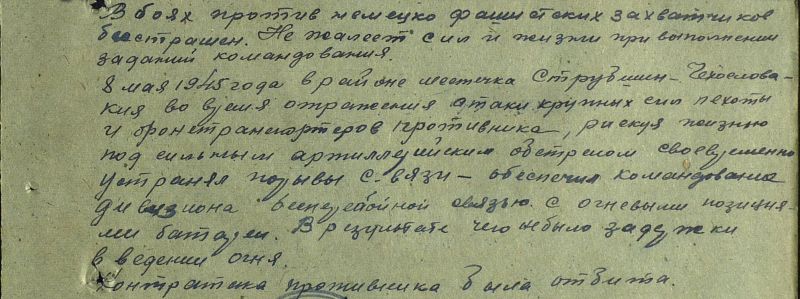 В боях против немецко фашистских захватчиков
бесстрашен. Не жалеет сил и жизни при выполнении
заданий командования.
8 мая 1945 года в районе местечка Струвшин - Чехослова-
кия во время отражения атаки крупных сил пехоты
и бронетранспортеров противника, рискуя жизнью
под сильным артиллерийским обстрелом своевременно
устранял порывы связи - обеспечил командование
дивизиона бесперебойной связью с огневыми позиция-
ми батарей. В результате чего небыло задержки
в ведении огня.
Контратака противника была отбита.